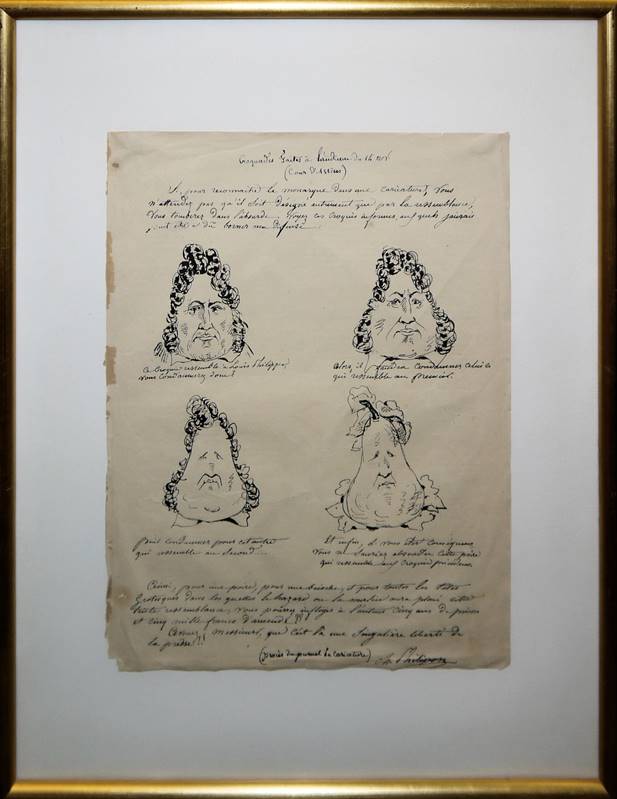 Croquades faites à l'audience du 14 nov.
(Cour d'Assises)
Si, pour reconnaître le monarque dans une caricature, vous
n'attendez pas qu'il soit désigné autrement que par la ressemblance,
vous tomberez dans l'absurde. Voyez ces croquis informes, auxquels j'aurais
peut être dû borner ma défense.
Ce croquis ressemble à Louis Philippe,
vous condamnerez donc!
Alors il faudra condamner celui ci
qui ressemble au premier.
puis condamner pour cet autre
qui ressemble au second...
Et enfin, si vous êtes conséquens
vous ne sauriez absoudre cette poire
qui ressemble aux croquis précédens.
Ainsi, pour une poire, pour une brioche, et pour toutes les têtes
grotesques dans les quelles le hazard ou la malice aura placé cette
triste ressemblance, vous pourrez infliger à l'auteur cinq ans de prison
et cinq mille francs d'amende!!
Avouez, Messieurs, que c'est là une singulière liberté de
la presse!!
(procès du journal la caricature)
Ch. Philipon